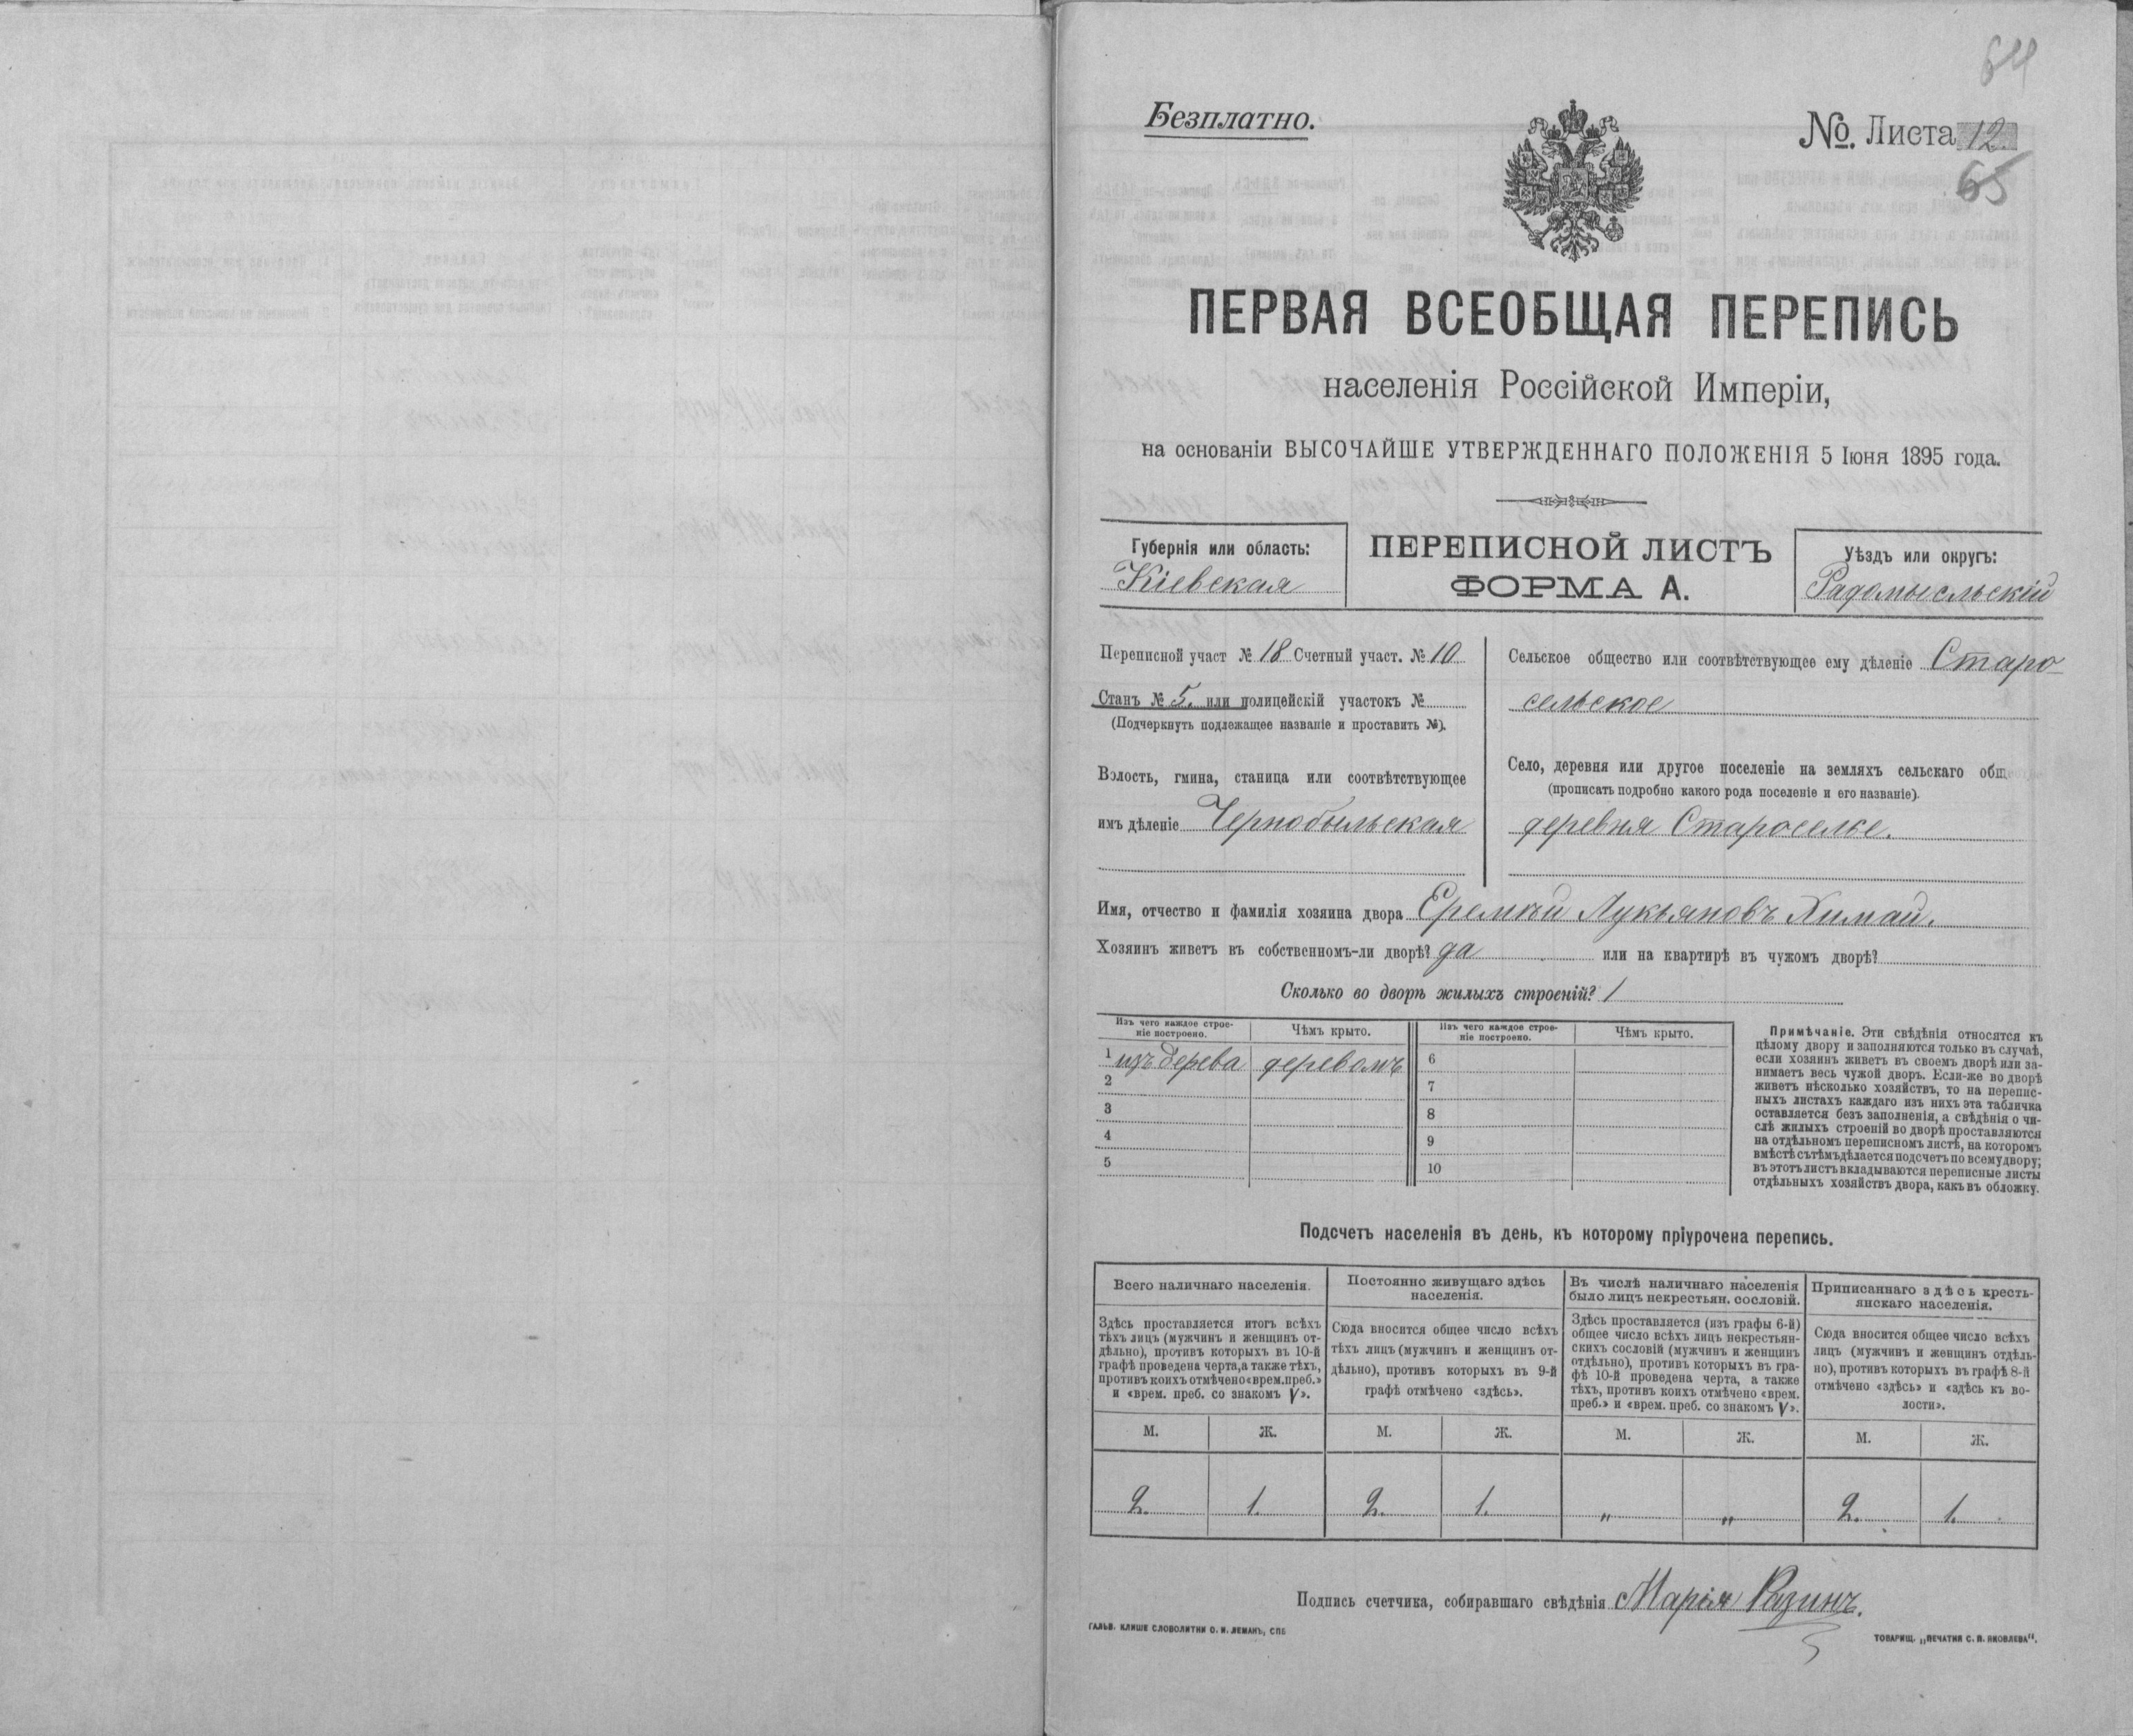 64
Безплатно.
№. Листа 12.
65
ПЕРВАЯ ВСЕОБЩАЯ ПЕРЕПИСЬ
населенія Россійской Имперіи,
на основаніи ВЫСОЧАЙШЕ УТВЕРЖДЕННАГО ПОЛОЖЕНІЯ 5 Іюня 1895 года.
Губернія или область:
Кіевская
ПЕРЕПИСНОЙ ЛИСТЪ
ФОРМА А.
Уѣздъ или округъ:
Радомысльскій
Переписной участ № 18 Счетный участ. № 10
Станъ № 5. или полицейскій участокъ №
(Подчеркнуть подлежащее названіе и проставить №).
Волость, гмина, станица или соотвѣтствующее
имъ дѣленіе Чернобыльская
Сельское общество или соотвѣтствующее ему дѣленіе Старо
сельское
Село, деревня или другое поселеніе на земляхъ сельскаго общ
(прописать подробно какого рода поселеніе и его названіе).
деревня Староселье.
Имя, отчество и фамилія хозяина двора Еремѣй Лукьяновъ Химай.
Хозяинъ живетъ въ собственномъ-ли дворѣ? да или на квартирѣ въ чужомъ дворѣ?
Сколько во дворѣ жилыхъ строеній? 1
Изъ чего каждое строе-
ніе построено.
Чѣмъ крыто.
Изъ чего каждое строе-
ніе построено.
Чѣмъ крыто.
1 изъ дерева деревомъ 6
2 7
3 8
4 9
5 10
Примѣчаніе. Эти свѣдѣнія относятся къ
цѣлому двору и заполняются только въ случаѣ,
если хозяинъ живетъ въ своемъ дворѣ или за-
нимаетъ весь чужой дворъ. Если-же во дворѣ
живетъ нѣсколько хозяйствъ, то на перепис-
ныхъ листахъ каждаго изъ нихъ эта табличка
оставляется безъ заполненія, а свѣдѣнія о чи-
слѣ жилыхъ строеній во дворѣ проставляются
на отдѣльномъ переписномъ листѣ, на которомъ
вмѣстѣ съ тѣмъ дѣлается подсчетъ по всему двору;
въ этотъ листъ вкладываются переписные листы
отдѣльныхъ хозяйствъ двора, какъ въ обложку.
Подсчетъ населенія въ день, къ которому пріурочена перепись.
Всего наличнаго населенія.
Здѣсь проставляется итогъ всѣхъ
тѣхъ лицъ (мужчинъ и женщинъ от-
дѣльно), противъ которыхъ въ 10-й
графѣ проведена черта, а также тѣхъ,
противъ коихъ отмѣчено «врем. преб.»
и «врем. преб. со знакомъ V».
Постоянно живущаго здѣсь
населенія.
Сюда вносится общее число всѣхъ
тѣхъ лицъ (мужчинъ и женщинъ от-
дѣльно), противъ которыхъ въ 9-й
графѣ отмѣчено «здѣсь».
Въ числѣ наличнаго населенія
было лицъ некрестьян. сословій.
Здѣсь проставляется (изъ графы 6-й)
общее число всѣхъ лицъ некрестьян-
скихъ сословій (мужчинъ и женщинъ
отдѣльно), противъ которыхъ въ гра-
фѣ 10-й проведена черта, а также
тѣхъ, противъ коихъ отмѣчено «врем.
преб.» и «врем. преб. со знакомъ V».
Приписаннаго здѣсь кресть-
янскаго населенія.
Сюда вносится общее число всѣхъ
лицъ (мужчинъ и женщинъ отдѣль-
но), противъ которыхъ въ графѣ 8-й
отмѣчено «здѣсь» и «здѣсь къ во-
лости».
М. Ж. М. Ж. М. Ж. М. Ж.
2. 1. 2. 1. " " 2. 1.
Подпись счетчика, собиравшаго свѣдѣнія Марія Разинъ.
ГАЛЬВ. КЛИШЕ СЛОВОЛИТНИ О. И. ЛЕМАНЪ, СПБ
ТОВАРИЩ. „ПЕЧАТНЯ С. П. ЯКОВЛЕВА".